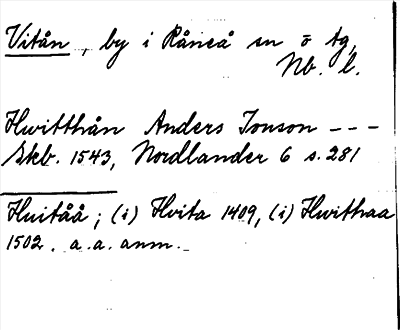 Vitån, by i Råneå sn ö tg,
Nb. l.
Hwitthån Anders Jonson - - -
Skb. 1543, Nordlander 6 s. 281
Huitåå; (i) Hvita 1409, (i) Hwithaa
1502. a.a. anm.